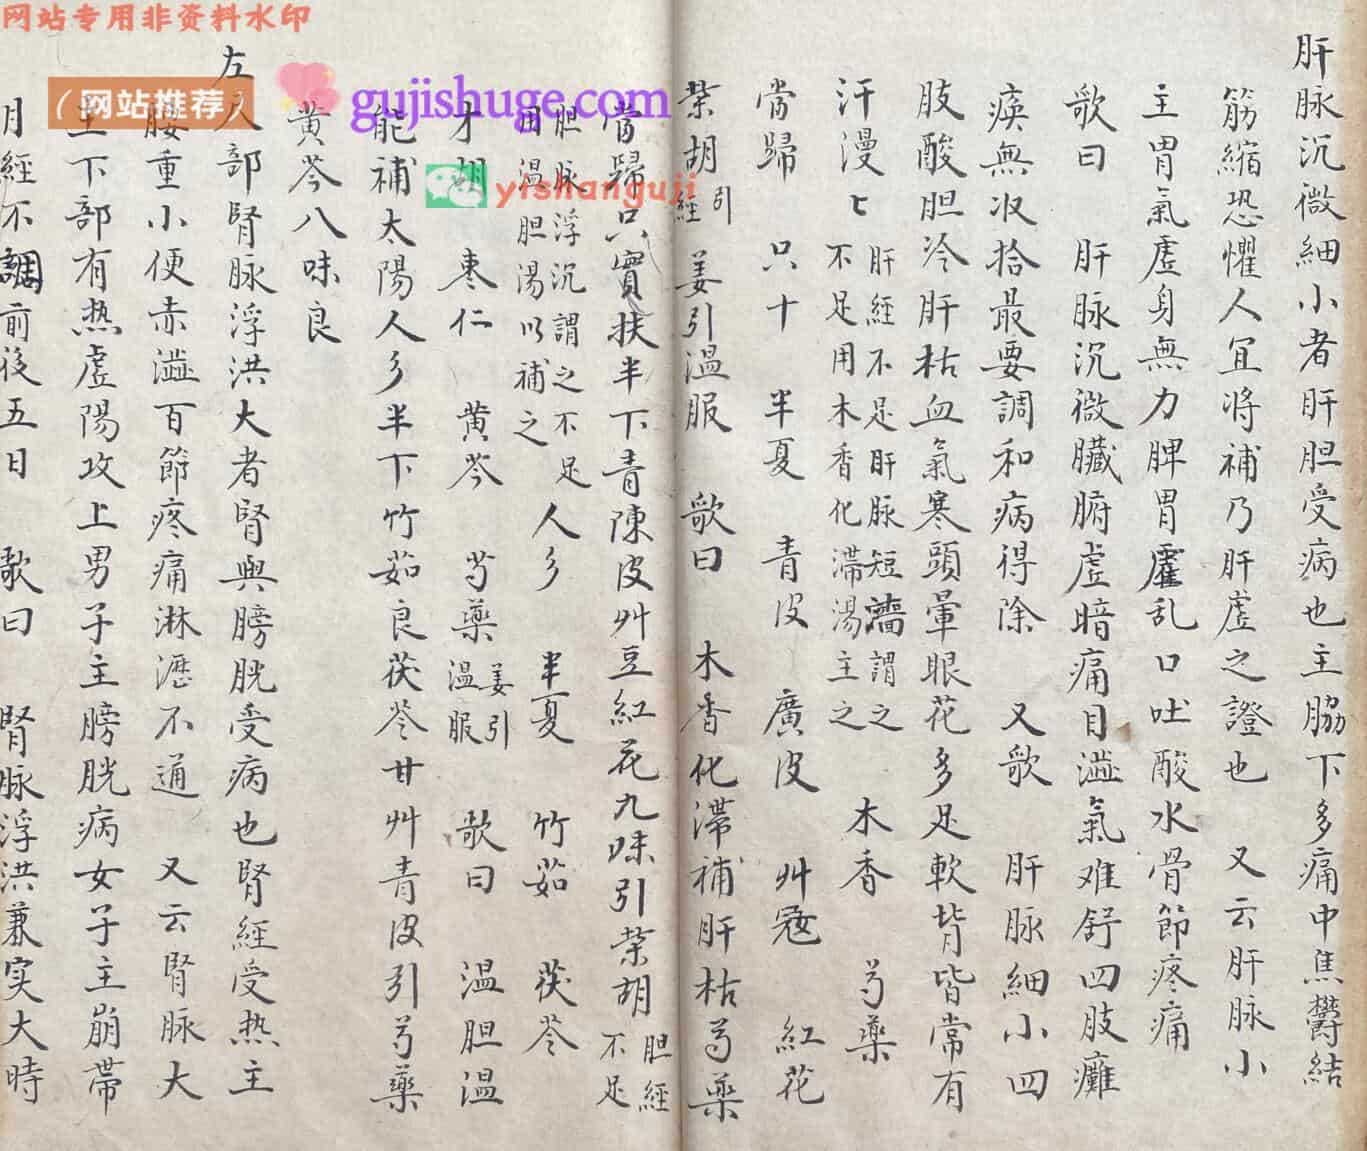 肝脉沉微细小者肝胆受病也主脇下多痛中焦欝结
筋縮恐懼人宜将補乃肝虚之證也 又云肝脉小
主胃氣虚身無力脾胃霍乱口吐酸水骨節疼痛
歌曰 肝脉沉微臟腑虚暗痛目澁氣难舒四肢癱
瘓無收拾最要調和病得除 又歌 肝脉細小四
肢酸胆冷肝枯血氣寒頭暈眼花多足軟背皆常有
汗漫〻 肝経不足肝脉短濇謂之
不足用木香化滞湯主之 木香 芍薬
當歸 只十 半夏 青皮 廣皮 艸蔻 紅花
柴胡 引経 姜引温服 歌曰 木香化滯補肝枯芍薬
當歸只實扶半下青陳皮艸豆紅花九味引柴胡 胆經
不足
胆脉浮沉謂之不足
用温胆湯以補之 人多 半夏 竹茹 茯苓
才胡 枣仁 黄芩 芍藥 姜引
温服 歌曰 温胆温
能補太陽人多半下竹茹良茯苓甘艸青皮引芍藥
黄芩八味良
左
尺部腎脉浮洪大者腎與膀胱受病也腎經受热主
腰重小便赤澁百節疼痛淋瀝不通 又云腎脉大
主下部有热虚陽攻上男子主膀胱病女子主崩帶
月經不調前後五日 歌曰 腎脉浮洪兼实大時
网站专用非资料水印
（网站推荐）
gujishuge.com
yishanguji